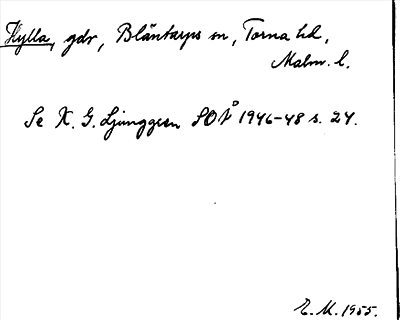 Hylla, gdr, Bläntarps sn, Torna hd,
Malm. l.
Se K. G. Ljunggren SOÅ 1946-48 s. 24.
E. M. 1955.